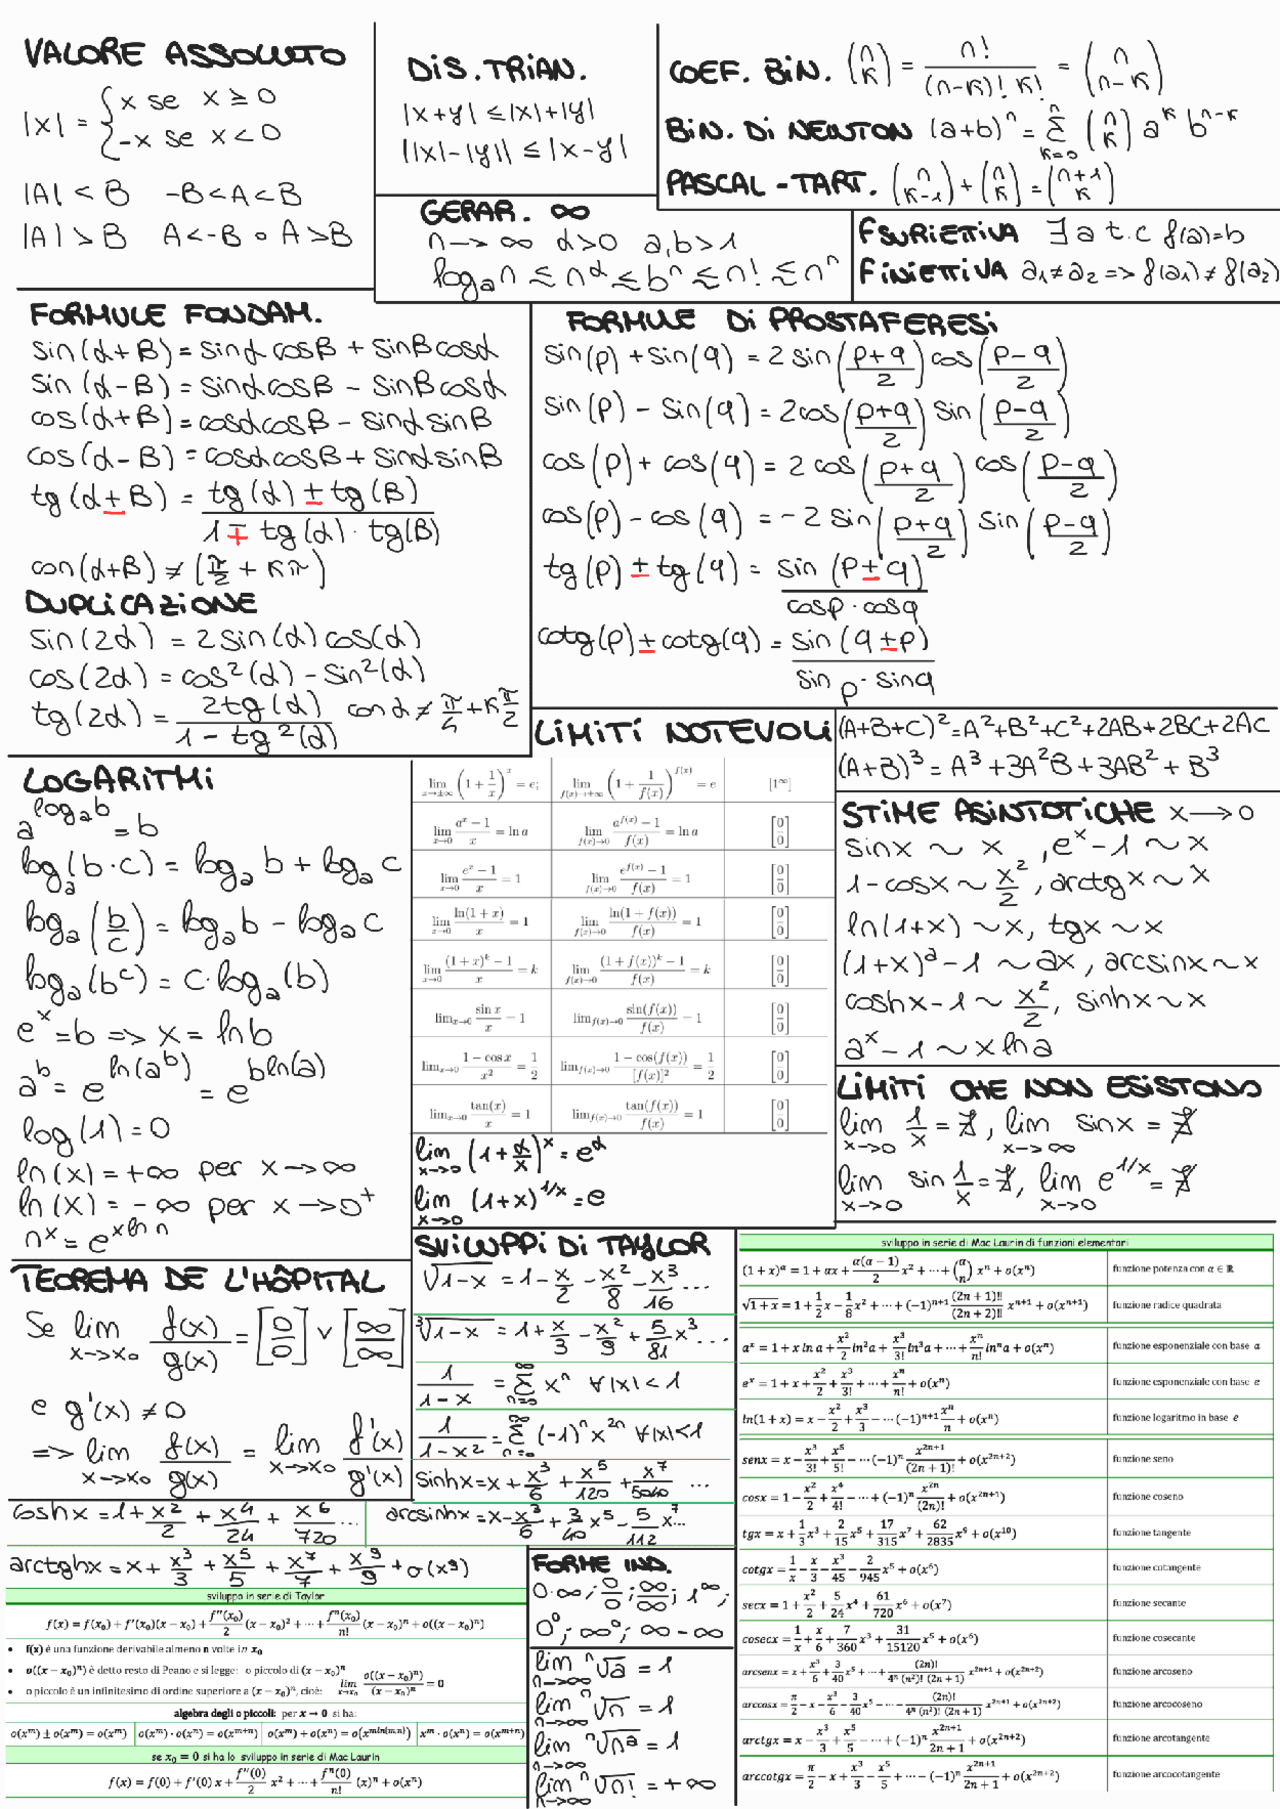 VALORE ASSOLUTO
|x| = { x se x ≥ 0
-x se x < 0
|A| < B -B<A<B
|A| > B A<-B o A>B
DIS. TRIAN.
|x+y| ≤ |x|+|y|
||x|-|y|| ≤ |x-y|
COEF. BIN. (n k) = n!/((n-k)! k!) = (n n-k)
BIN. DI NEWTON (a+b)^n = Σ_{k=0}^{n} (n k) a^k b^{n-k}
PASCAL - TART. (n k-1) + (n k) = (n+1 k)
GERAR. ∞
n → ∞ α>0 a,b>1
log_a n ≤ n^α ≤ b^n ≤ n! ≤ n^n
F SURIETTIVA ∃ a t.c f(a)=b
F INIETTIVA a₁≠a₂ => f(a₁) ≠ f(a₂)
FORMULE FONDAM.
sin(α+β) = sinα cosβ + sinβ cosα
sin(α-β) = sinα cosβ - sinβ cosα
cos(α+β) = cosα cosβ - sinα sinβ
cos(α-β) = cosα cosβ + sinα sinβ
tg(α±β) = (tg(α) ± tg(β))/(1 ∓ tg(α)·tg(β))
con(α+β) ≠ (π/2 + kπ)
DUPLICAZIONE
sin(2α) = 2 sin(α) cos(α)
cos(2α) = cos²(α) - sin²(α)
tg(2α) = 2tg(α)/(1 - tg²(α)) con α ≠ π/4 + k π/2
FORMULE DI PROSTAFERESI
sin(p) + sin(q) = 2 sin((p+q)/2) cos((p-q)/2)
sin(p) - sin(q) = 2cos((p+q)/2) sin((p-q)/2)
cos(p) + cos(q) = 2 cos((p+q)/2) cos((p-q)/2)
cos(p) - cos(q) = -2 sin((p+q)/2) sin((p-q)/2)
tg(p) ± tg(q) = sin(p±q)/(cosp·cosq)
cotg(p) ± cotg(q) = sin(q±p)/(sin p·sinq)
LOGARITMI
a^{log_a b} = b
log_a(b·c) = log_a b + log_a c
log_a(b/c) = log_a b - log_a c
log_a(b^c) = c·log_a(b)
e^x = b => x = ln b
a^b = e^{ln(a^b)} = e^{b ln(a)}
log(1) = 0
ln(x) = +∞ per x → ∞
ln(x) = -∞ per x → 0⁺
n^x = e^{x ln n}
LIMITI NOTEVOLI
lim_{x→±∞} (1 + 1/x)^x = e; lim_{f(x)→±∞} (1 + 1/f(x))^{f(x)} = e [1^∞]
lim_{x→0} (a^x - 1)/x = ln a lim_{f(x)→0} (a^{f(x)} - 1)/f(x) = ln a [0/0]
lim_{x→0} (e^x - 1)/x = 1 lim_{f(x)→0} (e^{f(x)} - 1)/f(x) = 1 [0/0]
lim_{x→0} ln(1 + x)/x = 1 lim_{f(x)→0} ln(1 + f(x))/f(x) = 1 [0/0]
lim_{x→0} ((1 + x)^k - 1)/x = k lim_{f(x)→0} ((1 + f(x))^k - 1)/f(x) = k [0/0]
lim_{x→0} sin x/x = 1 lim_{f(x)→0} sin(f(x))/f(x) = 1 [0/0]
lim_{x→0} (1 - cos x)/x² = 1/2 lim_{f(x)→0} (1 - cos(f(x)))/[f(x)]² = 1/2 [0/0]
lim_{x→0} tan(x)/x = 1 lim_{f(x)→0} tan(f(x))/f(x) = 1 [0/0]
lim_{x→0} (1 + α/x)^x = e^α
lim_{x→0} (1+x)^{1/x} = e
(A+B+C)² = A²+B²+C²+2AB+2BC+2AC
(A+B)³ = A³ + 3A²B + 3AB² + B³
STIME ASINTOTICHE x → 0
sinx ~ x , e^x - 1 ~ x
1 - cosx ~ x²/2 , arctgx ~ x
ln(1+x) ~ x, tgx ~ x
(1+x)^a - 1 ~ ax , arcsinx ~ x
coshx - 1 ~ x²/2, sinhx ~ x
a^x - 1 ~ x ln a
LIMITI CHE NON ESISTONO
lim_{x→0} 1/x = ∄, lim_{x→∞} sinx = ∄
lim_{x→0} sin 1/x = ∄, lim_{x→0} e^{1/x} = ∄
TEOREMA DE L'HÔPITAL
Se lim_{x→x₀} f(x)/g(x) = [0/0] ∨ [∞/∞]
e g'(x) ≠ 0
=> lim_{x→x₀} f(x)/g(x) = lim_{x→x₀} f'(x)/g'(x)
SVILUPPI DI TAYLOR
√(1-x) = 1 - x/2 - x²/8 - x³/16 ...
³√(1-x) = 1 + x/3 - x²/9 + 5/81 x³ ...
1/(1-x) = Σ_{n=0}^{∞} x^n ∀|x|<1
1/(1-x²) = Σ_{n=0}^{∞} (-1)^n x^{2n} ∀|x|<1
sinhx = x + x³/6 + x⁵/120 + x⁷/5040 ...
coshx = 1 + x²/2 + x⁴/24 + x⁶/720 ...
arcsinhx = x - x³/6 + 3/40 x⁵ - 5/112 x⁷...
arctghx = x + x³/3 + x⁵/5 + x⁷/7 + x⁹/9 + o(x⁹)
sviluppo in serie di Taylor
f(x) = f(x₀) + f'(x₀)(x - x₀) + f''(x₀)/2 (x - x₀)² + ⋯ + fⁿ(x₀)/n! (x - x₀)ⁿ + o((x - x₀)ⁿ)
• f(x) è una funzione derivabile almeno n volte in x₀
• o((x - x₀)ⁿ) è detto resto di Peano e si legge: o piccolo di (x - x₀)ⁿ
• o piccolo è un infinitesimo di ordine superiore a (x - x₀)ⁿ, cioè: lim_{x→x₀} o((x - x₀)ⁿ)/(x - x₀)ⁿ = 0
algebra degli o piccoli: per x → 0 si ha:
o(x^m) ± o(x^m) = o(x^m) o(x^m) · o(x^n) = o(x^{m+n}) o(x^m) + o(x^n) = o(x^{min(m;n)}) x^m · o(x^n) = o(x^{m+n})
se x₀ = 0 si ha lo sviluppo in serie di Mac Laurin
f(x) = f(0) + f'(0) x + f''(0)/2 x² + ⋯ + fⁿ(0)/n! (x)ⁿ + o(xⁿ)
FORME IND.
0·∞ ; 0/0 ; ∞/∞ ; 1^∞ ;
0⁰ ; ∞⁰ ; ∞ - ∞
lim_{n→∞} ⁿ√a = 1
lim_{n→∞} ⁿ√n = 1
lim_{n→∞} ⁿ√n^a = 1
lim_{n→∞} ⁿ√n! = +∞
sviluppo in serie di Mac Laurin di funzioni elementari
(1 + x)^α = 1 + αx + α(α - 1)/2 x² + ⋯ + (α n) xⁿ + o(xⁿ) funzione potenza con α ∈ ℝ
√(1 + x) = 1 + 1/2 x - 1/8 x² + ⋯ + (-1)^{n+1} (2n + 1)!!/(2n + 2)!! x^{n+1} + o(x^{n+1}) funzione radice quadrata
a^x = 1 + x ln a + x²/2 ln²a + x³/3! ln³a + ⋯ + xⁿ/n! lnⁿa + o(xⁿ) funzione esponenziale con base a
e^x = 1 + x + x²/2 + x³/3! + ⋯ + xⁿ/n! + o(xⁿ) funzione esponenziale con base e
ln(1 + x) = x - x²/2 + x³/3 - ⋯ (-1)^{n+1} xⁿ/n + o(xⁿ) funzione logaritmo in base e
senx = x - x³/3! + x⁵/5! - ⋯ (-1)ⁿ x^{2n+1}/(2n + 1)! + o(x^{2n+2}) funzione seno
cosx = 1 - x²/2 + x⁴/4! - ⋯ + (-1)ⁿ x^{2n}/(2n)! + o(x^{2n+1}) funzione coseno
tgx = x + 1/3 x³ + 2/15 x⁵ + 17/315 x⁷ + 62/2835 x⁹ + o(x¹⁰) funzione tangente
cotgx = 1/x - x/3 - x³/45 - 2/945 x⁵ + o(x⁶) funzione cotangente
secx = 1 + x²/2 + 5/24 x⁴ + 61/720 x⁶ + o(x⁷) funzione secante
cosecx = 1/x + x/6 + 7/360 x³ + 31/15120 x⁵ + o(x⁶) funzione cosecante
arcsenx = x + x³/6 + 3/40 x⁵ + ⋯ + (2n)!/(4ⁿ (n!)² (2n + 1)) x^{2n+1} + o(x^{2n+2}) funzione arcoseno
arccosx = π/2 - x - x³/6 - 3/40 x⁵ - ⋯ - (2n)!/(4ⁿ (n!)² (2n + 1)) x^{2n+1} + o(x^{2n+2}) funzione arcocoseno
arctgx = x - x³/3 + x⁵/5 - ⋯ + (-1)ⁿ x^{2n+1}/(2n + 1) + o(x^{2n+2}) funzione arcotangente
arccotgx = π/2 - x + x³/3 - x⁵/5 + ⋯ - (-1)ⁿ x^{2n+1}/(2n + 1) + o(x^{2n+2}) funzione arcocotangente